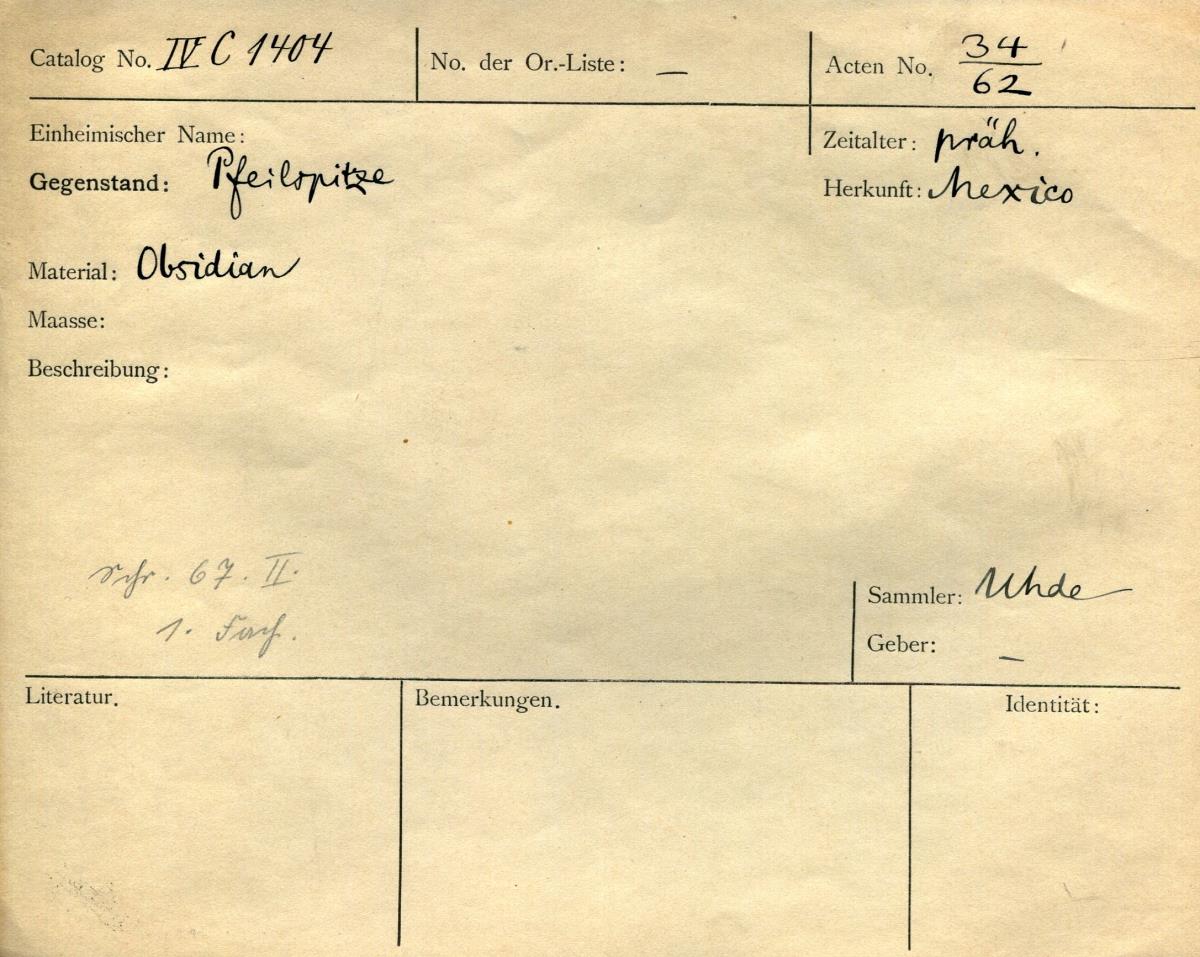 Catalog No. IV C 1404
No. der Or.-Liste: —
Acten No. 34/62
Einheimischer Name:
Zeitalter: präh.
Gegenstand: Pfeilspitze
Herkunft: Mexico
Material: Obsidian
Maasse:
Beschreibung:
Schr. 67. II.
1. Fach.
Sammler: Uhde
Geber: —
Literatur.
Bemerkungen.
Identität: